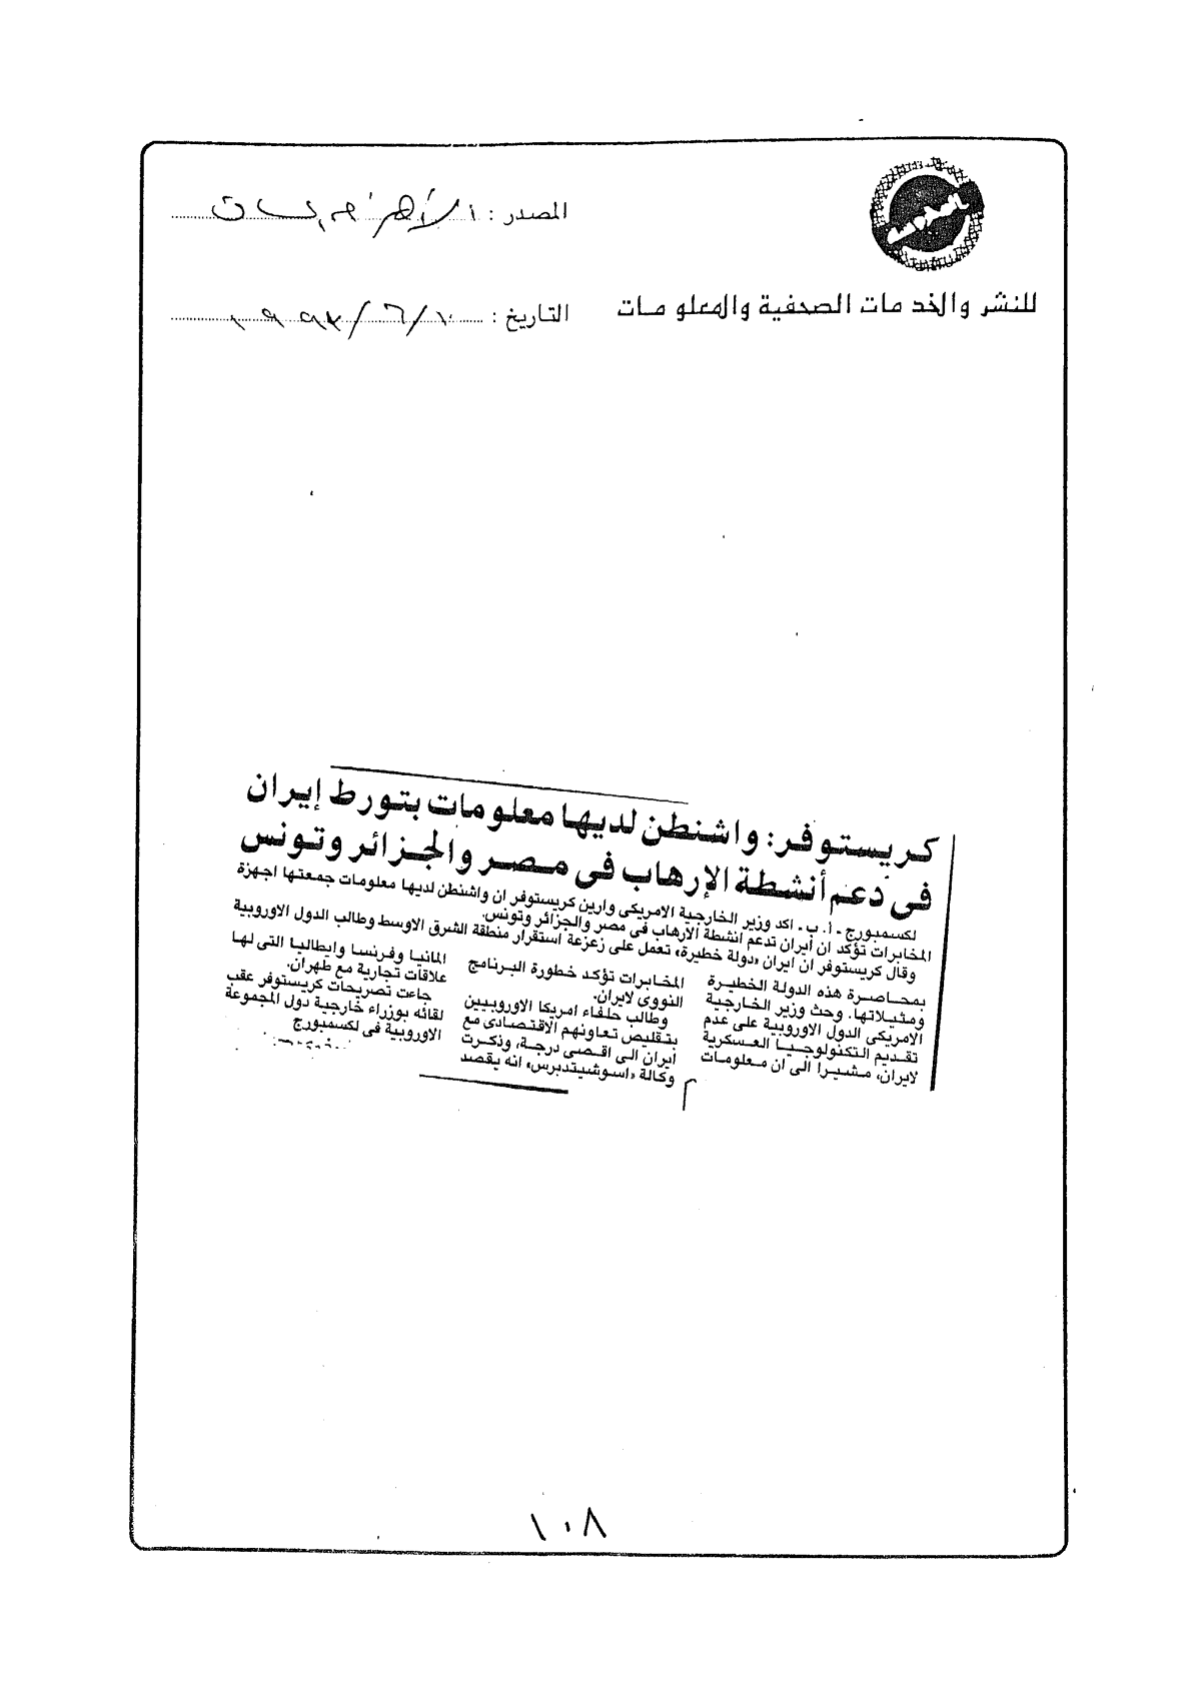 المصدر : الأهرام
التاريخ : ١٠/٦/١٩٩٣
للنشر والخدمات الصحفية والمعلومات
كريستوفر: واشنطن لديها معلومات بتورط إيران
فى دعم أنشطة الإرهاب فى مصر والجزائر وتونس
لكسمبورج - أ. ب - اكد وزير الخارجية الامريكى وارين كريستوفر ان واشنطن لديها معلومات جمعتها اجهزة
المخابرات تؤكد ان ايران تدعم انشطة الارهاب فى مصر والجزائر وتونس.
وقال كريستوفر ان ايران «دولة خطيرة» تعمل على زعزعة استقرار منطقة الشرق الاوسط وطالب الدول الاوروبية
بمحاصرة هذه الدولة الخطيرة
ومثيلاتها. وحث وزير الخارجية
الامريكى الدول الاوروبية على عدم
تقديم التكنولوجيا العسكرية
لايران، مشيرا الى ان معلومات
المخابرات تؤكد خطورة البرنامج
النووى لايران.
وطالب حلفاء امريكا الاوروبيين
بتقليص تعاونهم الاقتصادى مع
ايران الى اقصى درجة، وذكرت
وكالة «اسوشيتدبرس» انه يقصد
المانيا وفرنسا وايطاليا التى لها
علاقات تجارية مع طهران.
جاءت تصريحات كريستوفر عقب
لقائه بوزراء خارجية دول المجموعة
الاوروبية فى لكسمبورج
١٠٨